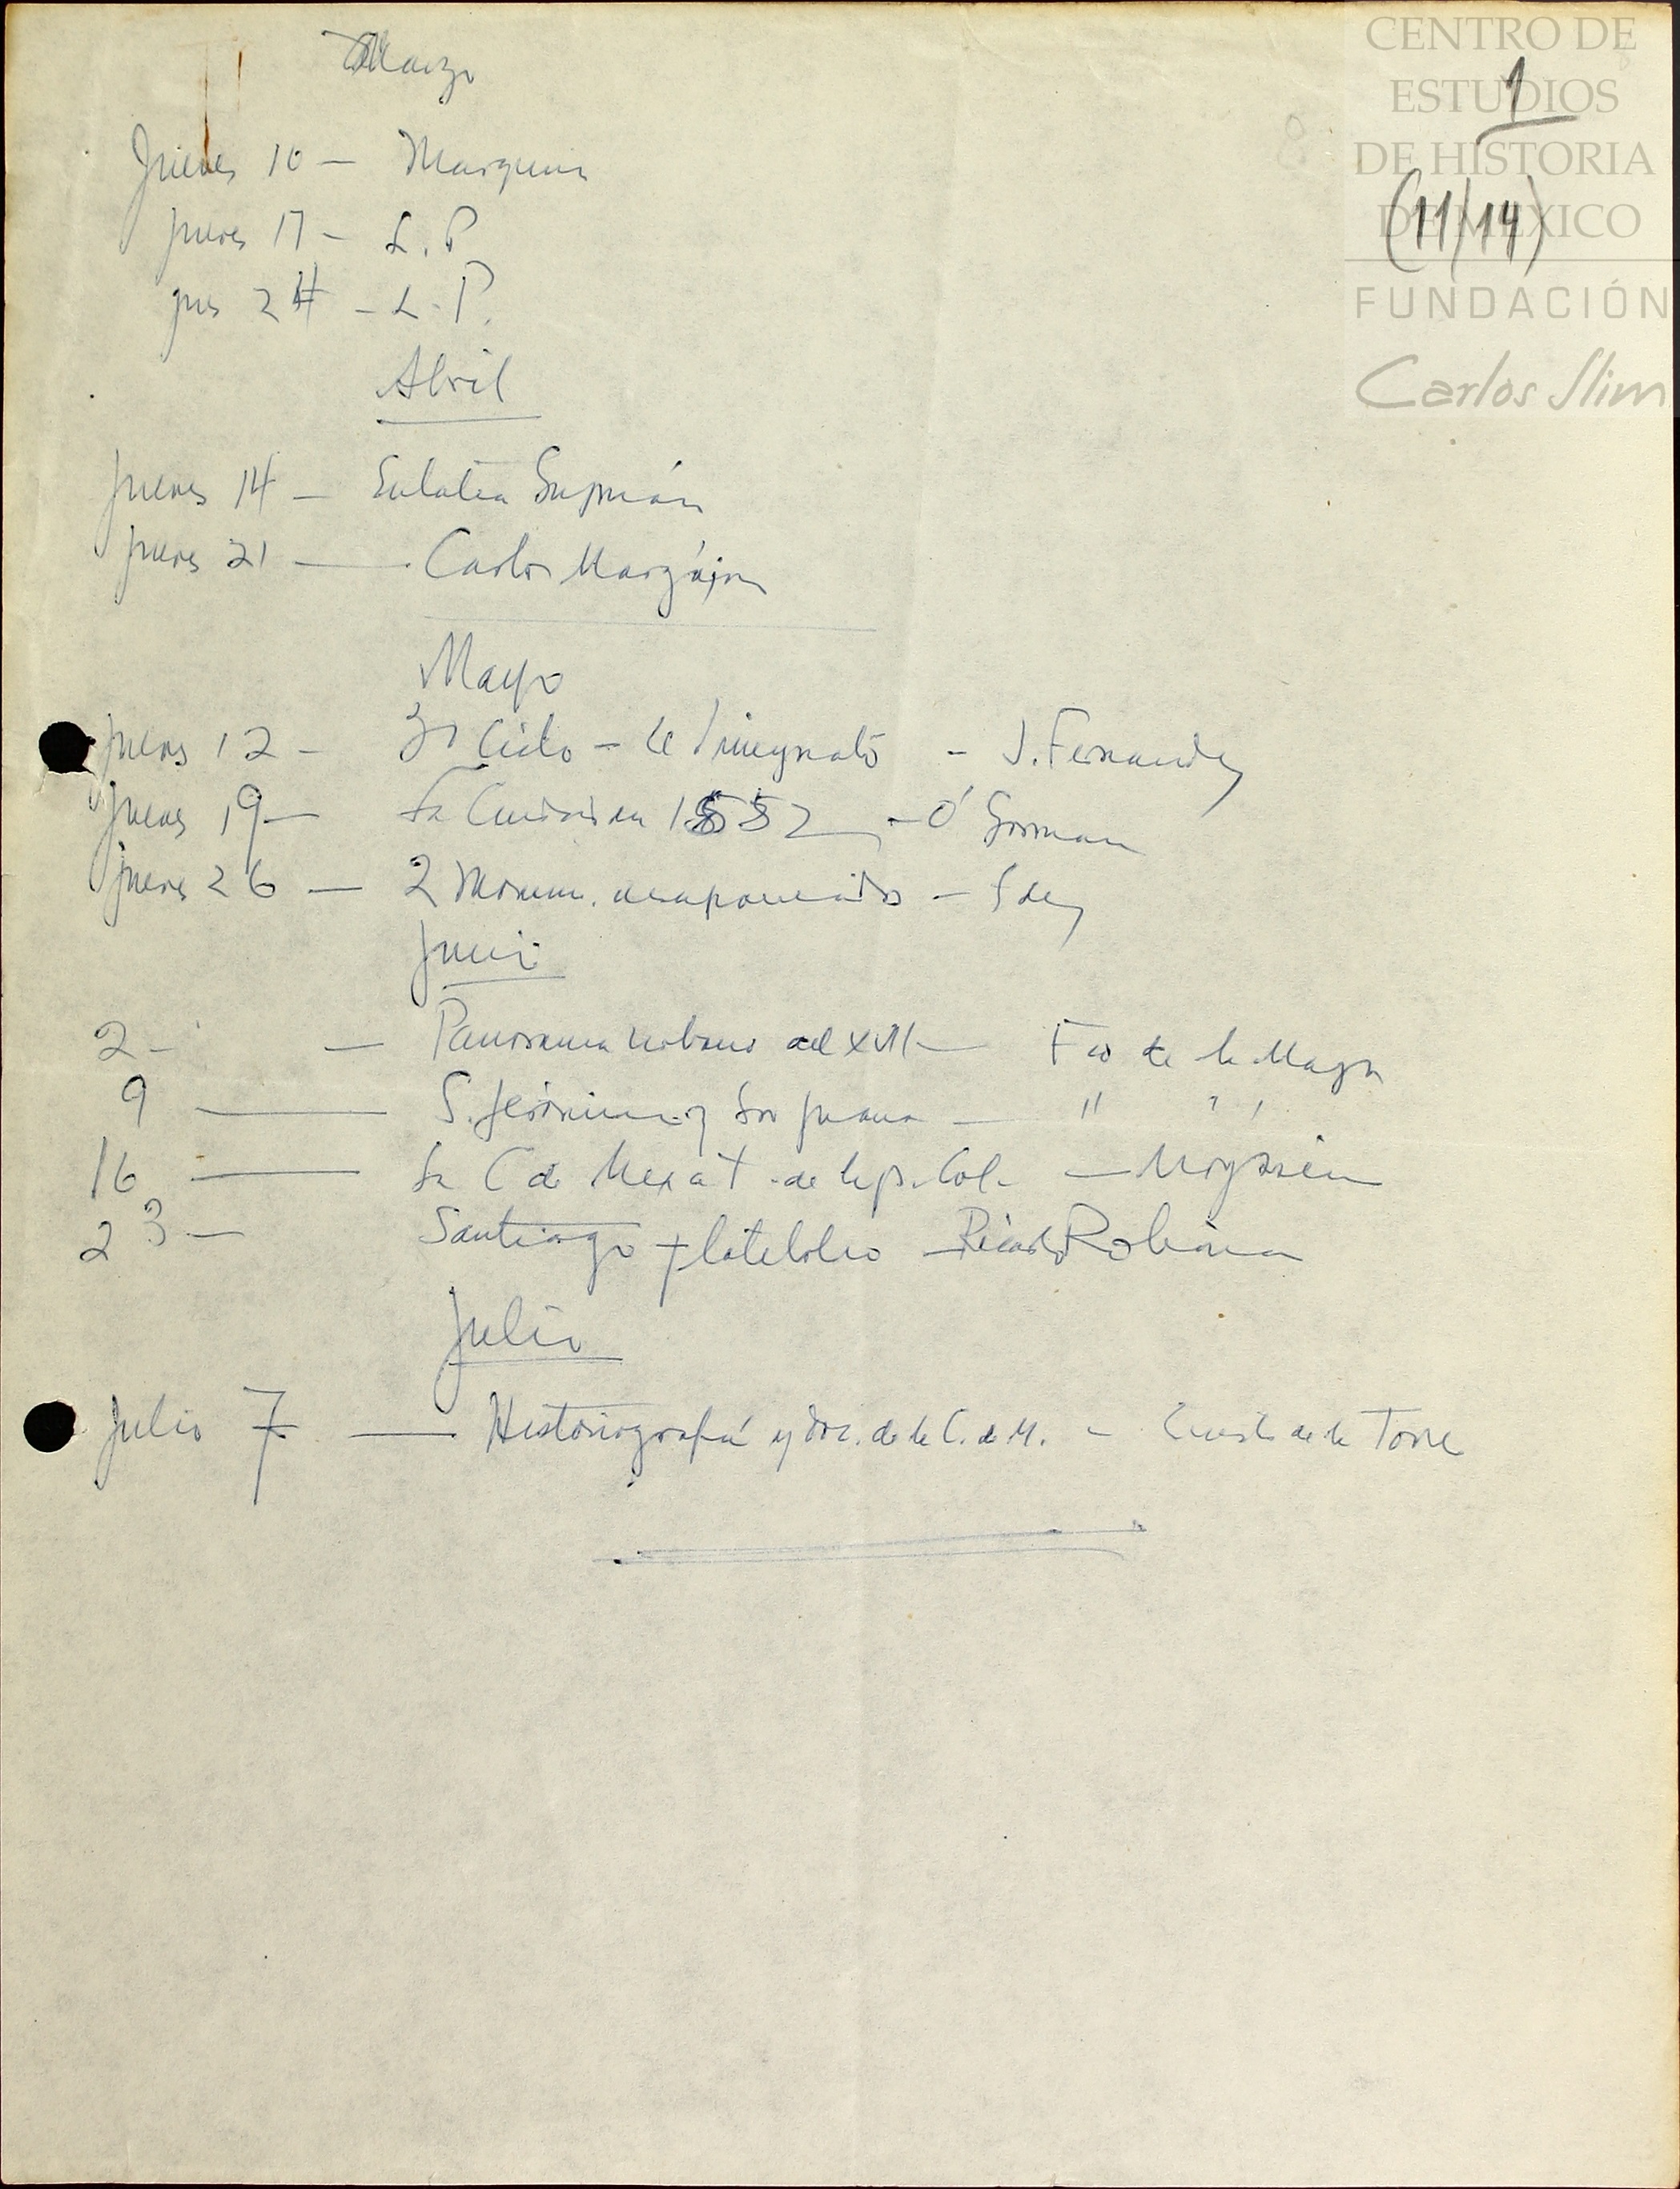 CENTRO DE
ESTUDIOS
DE HISTORIA
DE MEXICO
FUNDACIÓN
Carlos Slim
1
(11/14)
Marzo
Jueves 10 — Marquina
jueves 17 — L. P
jues 24 — L. P.
Abril
jueves 14 — Eulalia Guzmán
jueves 21 — Carlos Margáin
Mayo
jueves 12 — 3er Ciclo — el Virreynato — J. Fernandez
jueves 19 — La Ciudad en 1552 — O'Gorman
jueves 26 — 2 Monum. desaparecidos —
Junio
2 — — Panorama urbano del XVII — Fco de la Maza
9 — S. Jerónimo y Sor Juana — " "
16 — La C de Mex a t. de la p. Col. — Moyssén
23 — Santiago Tlatelolco — Ricardo Robina
Julio
Julio 7 — Historiografía y doc. de la C. de M. — Ernesto de la Torre